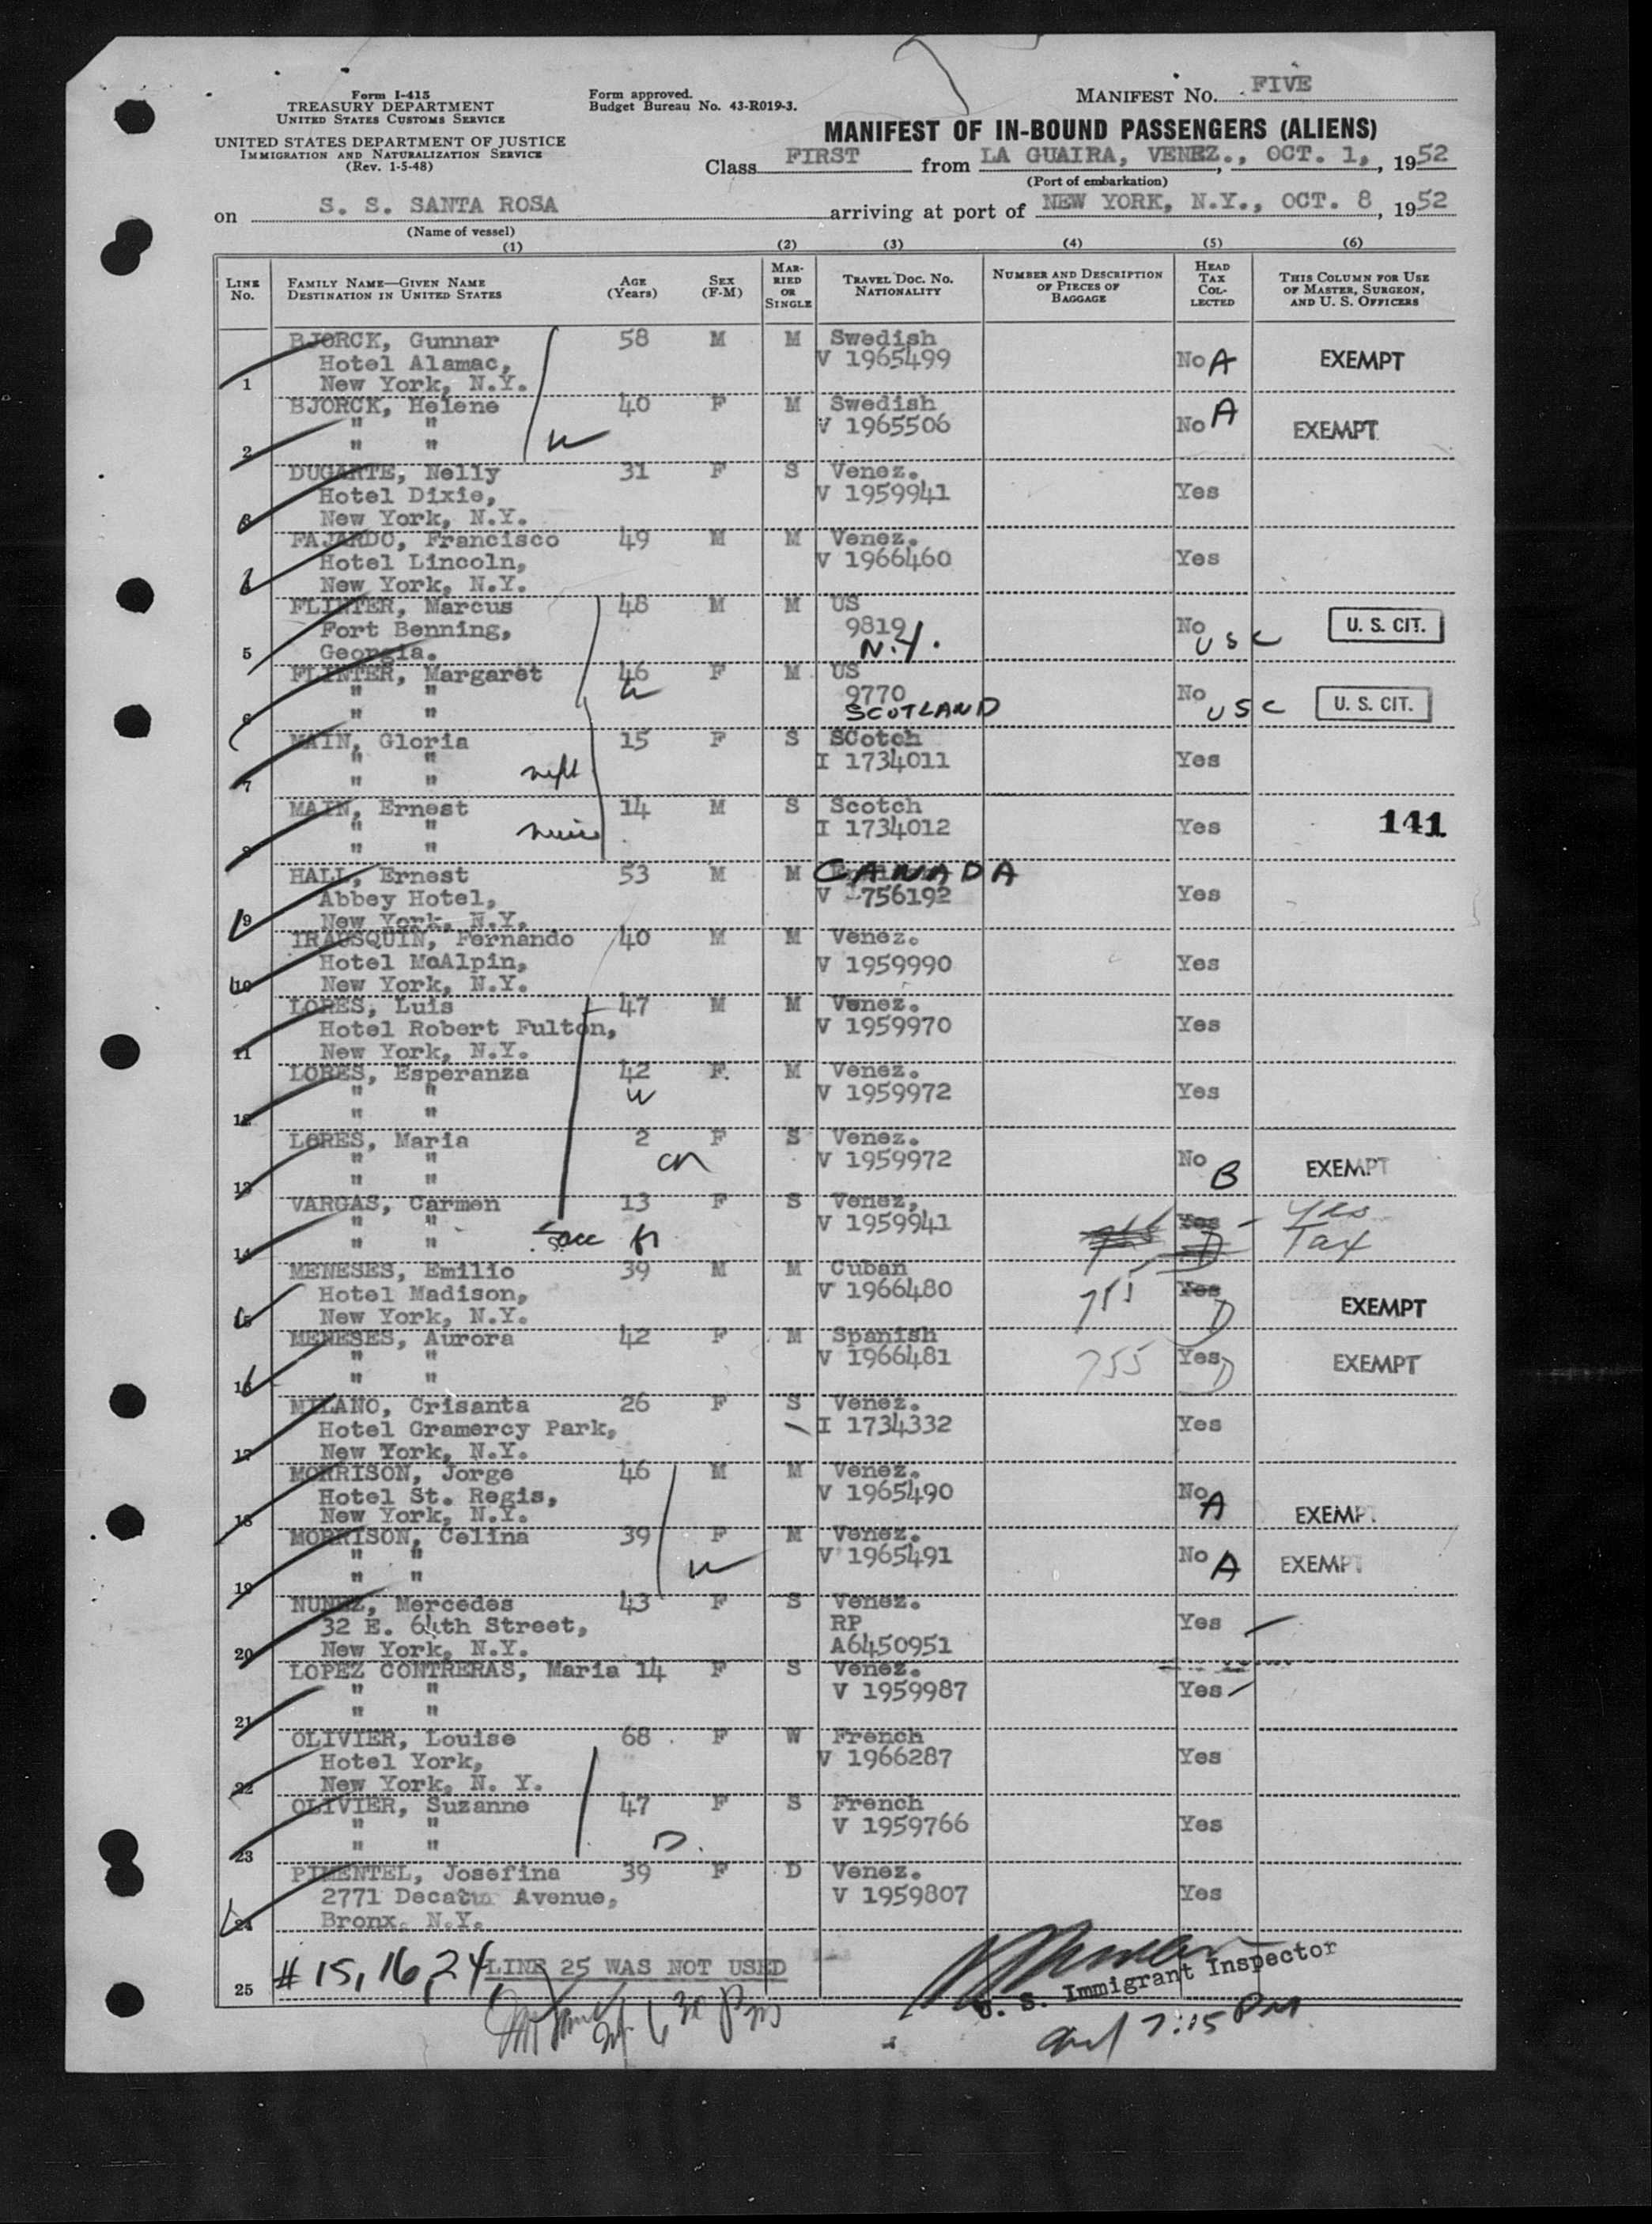 Form I-415
TREASURY DEPARTMENT
UNITED STATES CUSTOMS SERVICE
UNITED STATES DEPARTMENT OF JUSTICE
IMMIGRATION AND NATURALIZATION SERVICE
(Rev. 1-5-48)
Form approved.
Budget Bureau No. 43-R019-3.
MANIFEST NO. FIVE
MANIFEST OF IN-BOUND PASSENGERS (ALIENS)
Class FIRST from LA GUAIRA, VENEZ., OCT. 1, , 1952
(Port of embarkation)
on S. S. SANTA ROSA arriving at port of NEW YORK, N.Y., OCT. 8 , 1952
(Name of vessel)
(1) (2) (3) (4) (5) (6)
LINE NO. FAMILY NAME—GIVEN NAME DESTINATION IN UNITED STATES AGE (Years) SEX (F-M) MARRIED OR SINGLE TRAVEL DOC. NO. NATIONALITY NUMBER AND DESCRIPTION OF PIECES OF BAGGAGE HEAD TAX COLLECTED THIS COLUMN FOR USE OF MASTER, SURGEON, AND U. S. OFFICERS
BJORCK, Gunnar 58 M M Swedish
Hotel Alamac, V 1965499 No A EXEMPT
1 New York, N.Y.
BJORCK, Helene 40 F M Swedish
" " V 1965506 No A EXEMPT
2 " " W
DUGARTE, Nelly 31 F S Venez.
Hotel Dixie, V 1959941 Yes
3 New York, N.Y.
FAJARDO, Francisco 49 M M Venez.
Hotel Lincoln, V 1966460 Yes
4 New York, N.Y.
FLINTER, Marcus 48 M M US
Fort Benning, 9819 No U. S. CIT.
5 Georgia. N.Y. USC
FLINTER, Margaret 46 F M US
" " W 9770 No U. S. CIT.
6 " " SCOTLAND USC
MAIN, Gloria 15 F S SCotch
" " I 1734011 Yes
7 " "
MAIN, Ernest 14 M S Scotch
" " I 1734012 Yes 141
8 " "
HALL, Ernest 53 M M CANADA
Abbey Hotel, V 756192 Yes
9 New York, N.Y.
IRAUSQUIN, Fernando 40 M M Venez.
Hotel McAlpin, V 1959990 Yes
10 New York, N.Y.
LORES, Luis 47 M M Venez.
Hotel Robert Fulton, V 1959970 Yes
11 New York, N.Y.
LORES, Esperanza 42 F. M Venez.
" " W V 1959972 Yes
12 " "
LORES, Maria 2 F S Venez.
" " V 1959972 No B EXEMPT
13 " "
VARGAS, Carmen 13 F S Venez,
" " V 1959941 Yes - Yes
14 " " D Tax
MENESES, Emilio 39 M M Cuban
Hotel Madison, V 1966480 755 Yes D EXEMPT
15 New York, N.Y.
MENESES, Aurora 42 F M Spanish
" " V 1966481 755 Yes D EXEMPT
16 " "
MILANO, Crisanta 26 F S Venez.
Hotel Gramercy Park, I 1734332 Yes
17 New York, N.Y.
MORRISON, Jorge 46 M M Venez.
Hotel St. Regis, V 1965490 No A EXEMPT
18 New York, N.Y.
MORRISON, Celina 39 F M Venez.
" " W V 1965491 No A EXEMPT
19 " "
NUNEZ, Mercedes 43 F S Venez.
32 E. 64th Street, RP Yes
20 New York, N.Y. A6450951
LOPEZ CONTRERAS, Maria 14 F S Venez.
" " V 1959987 Yes
21 " "
OLIVIER, Louise 68 F W French
Hotel York, V 1966287 Yes
22 New York, N. Y.
OLIVIER, Suzanne 47 F S French
" " V 1959766 Yes
23 " " D.
PIMENTEL, Josefina 39 F D Venez.
2771 Decatur Avenue, V 1959807 Yes
24 Bronx, N.Y.
25 # 15, 16, 24, LINE 25 WAS NOT USED
U. S. Immigrant Inspector
6 30 Pm
7:15 PM